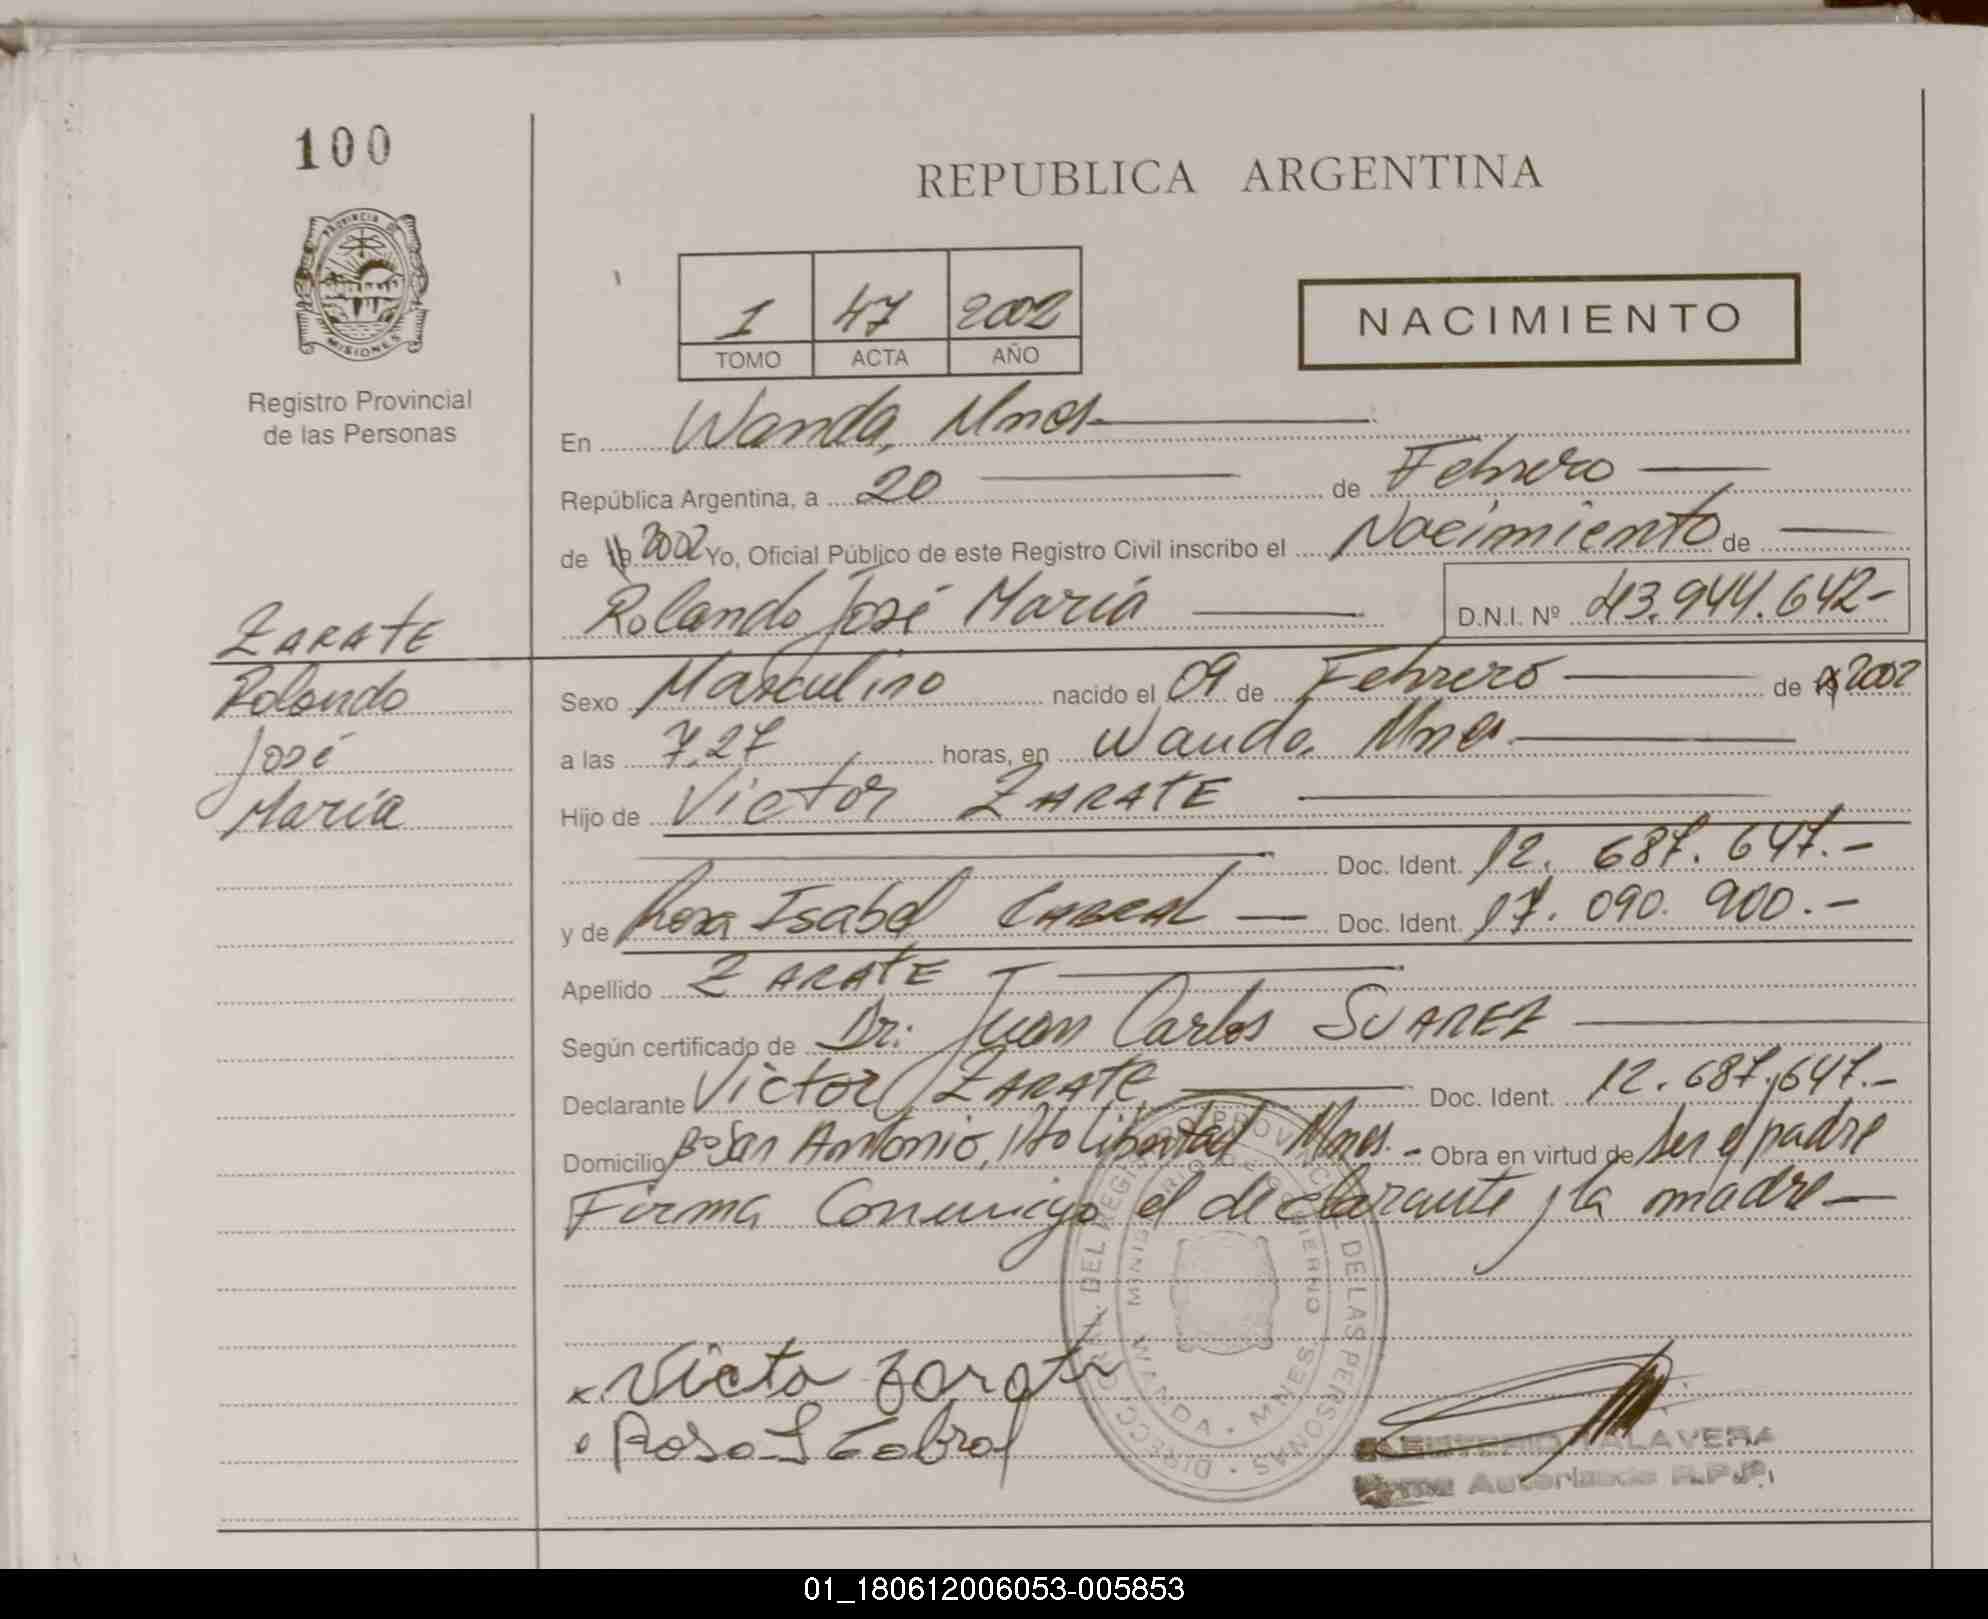 100
REPUBLICA ARGENTINA
PROVINCIA DE
MISIONES
Registro Provincial
de las Personas
1 47 2002
TOMO ACTA AÑO
NACIMIENTO
En Wanda, Mnes
República Argentina, a 20 de Febrero
de 19 2002 Yo, Oficial Público de este Registro Civil inscribo el Nacimiento de
Rolando José María D.N.I. Nº 43.944.642-
ZARATE
Rolando
José
María
Sexo Masculino nacido el 09 de Febrero de 19 2002
a las 7,27 horas, en Wanda, Mnes
Hijo de Victor ZARATE
Doc. Ident. 12.687.647.-
y de Rosa Isabel CABRAL — Doc. Ident. 17.090.900.-
Apellido ZARATE
Según certificado de Dr. Juan Carlos SUAREZ
Declarante Victor ZARATE Doc. Ident. 12.687.647.-
Domicilio Bº San Antonio, Pto Libertad Mnes.- Obra en virtud de ser el padre
Firma Conmigo el declarante y la madre—
DIRECC. GRAL. DEL REGISTRO PROVINCIAL DE LAS PERSONAS
MINISTERIO DE GOBIERNO
WANDA - MNES.
x. Victo Zarate
Rosa I Cabral
TALAVERA
Firma Autorizada R.P.P.
01_180612006053-005853